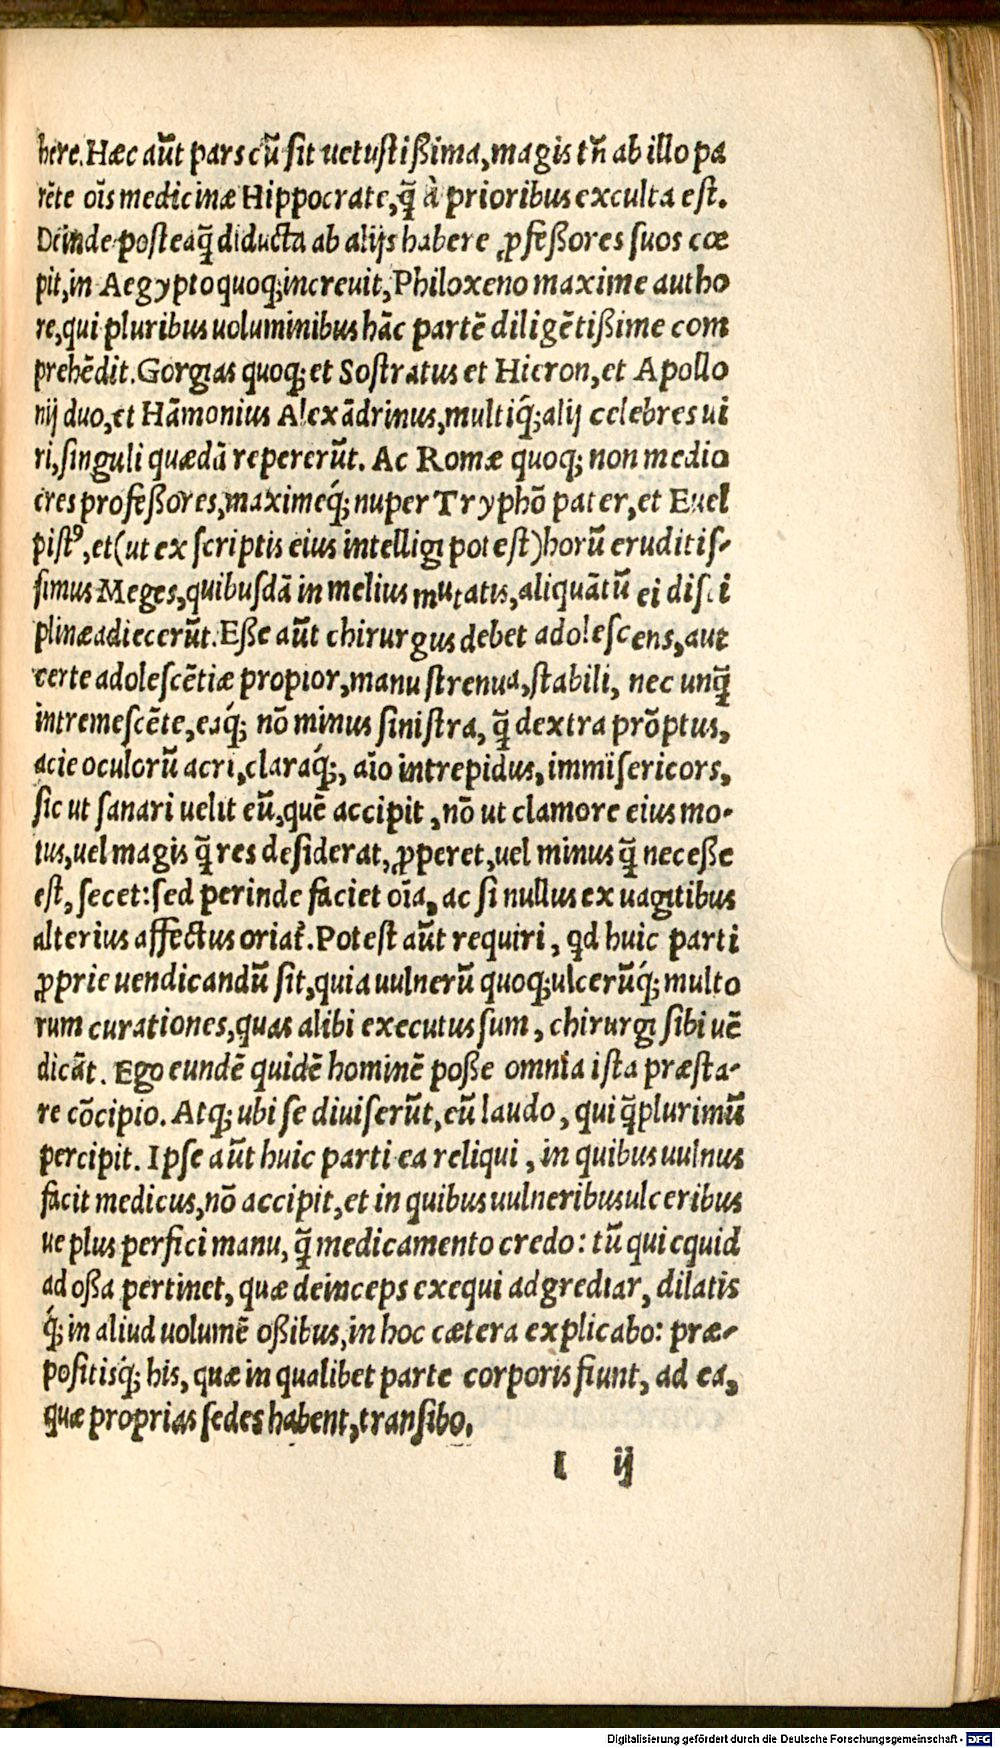 bere. Hæc aūt pars cū sit uetustißima, magis tñ ab illo pa
rēte oīs medicinæ Hippocrate, q̄ à prioribus exculta est.
Deinde posteaq̄ diducta ab alijs habere ꝓfeßores suos cœ
pit, in Aegypto quoq; increuit, Philoxeno maxime autho
re, qui pluribus uoluminibus hāc partē diligētißime com
prehēdit. Gorgias quoq; et Sostratus et Hieron, et Apollo
nij duo, et Hāmonius Alexādrinus, multiq́; alij celebres ui
ri, singuli quædā repererūt. Ac Romæ quoq; non medio
cres profeßores, maximeq́; nuper Tryphō pater, et Euel
pistꝰ, et (ut ex scriptis eius intelligi potest) horū eruditis-
simus Meges, quibusdā in melius mutatis, aliquātū ei disci
plinæ adiecerūt. Eße aūt chirurgus debet adolescens, aut
certe adolescētiæ propior, manu strenua, stabili, nec unq̄
intremescēte, eaq́; nō minus sinistra, q̄ dextra prōptus,
acie oculorū acri, claraq́;, aīo intrepidus, immisericors,
sic ut sanari uelit eū, quē accipit, nō ut clamore eius mo-
tus, uel magis q̄ res desiderat, ꝓperet, uel minus q̄ neceße
est, secet: sed perinde faciet oīa, ac si nullus ex uagitibus
alterius affectus oriat̄. Potest aūt requiri, qd huic parti
ꝓprie uendicandū sit, quia uulnerū quoq; ulcerūq́; multo
rum curationes, quas alibi executus sum, chirurgi sibi uē
dicāt. Ego eundē quidē hominē poße omnia ista præsta-
re cōcipio. Atq; ubi se diuiserūt, eū laudo, qui q̄plurimū
percipit. Ipse aūt huic parti ea reliqui, in quibus uulnus
facit medicus, nō accipit, et in quibus uulneribus ulceribus
ue plus perfici manu, q̄ medicamento credo: tū quicquid
ad oßa pertinet, quæ deinceps exequi adgrediar, dilatis
q́; in aliud uolumē oßibus, in hoc cætera explicabo: præ-
positisq́; his, quæ in qualibet parte corporis fiunt, ad ea,
quæ proprias sedes habent, transibo.
I ij
Digitalisierung gefördert durch die Deutsche Forschungsgemeinschaft - DFG